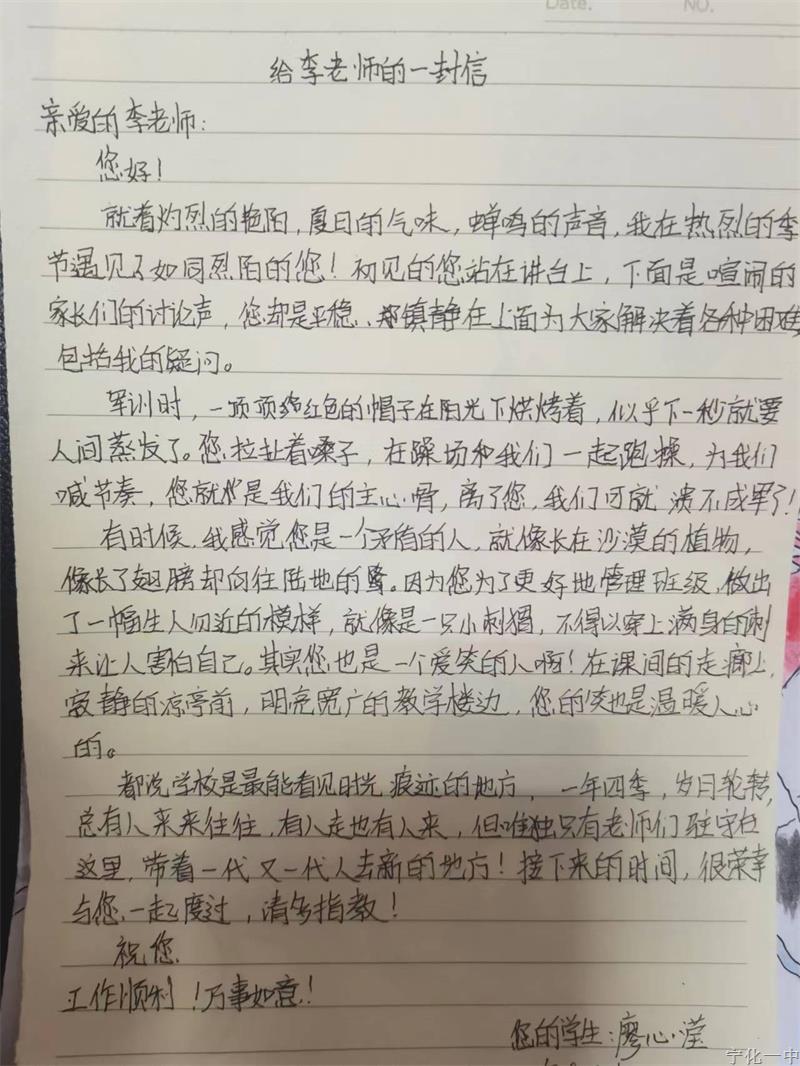 Date.
NO.
给李老师的一封信
亲爱的李老师：
您好！
就着灼烈的艳阳，夏日的气味，蝉鸣的声音，我在热烈的季
节遇见了如同烈阳的您！初见的您站在讲台上，下面是喧闹的
家长们的讨论声，您却是平稳、镇静在上面为大家解决着各种困难
包括我的疑问。
军训时，一顶顶绛红色的帽子在阳光下烘烤着，似乎下一秒就要
人间蒸发了。您拉扯着嗓子，在躁场和我们一起跑操，为我们
喊节奏，您就是我们的主心骨，离了您，我们可就溃不成军了！
有时候，我感觉您是一个矛盾的人，就像长在沙漠的植物，
像长了翅膀却向往陆地的鸟。因为您为了更好地管理班级，做出
了一幅生人勿近的模样，就像是一只小刺猬，不得以穿上满身的刺
来让人害怕自己。其实您也是一个爱笑的人啊！在课间的走廊上，
寂静的凉亭前，明亮宽广的教学楼边，您的笑也是温暖人心
的。
都说学校是最能看见时光痕迹的地方，一年四季，岁月轮转，
总有人来来往往，有人走也有人来，但唯独只有老师们驻守在
这里，带着一代又一代人去新的地方！接下来的时间，很荣幸
与您一起度过，请多指教！
祝您
工作顺利！万事如意！
您的学生：廖心滢
宁化一中